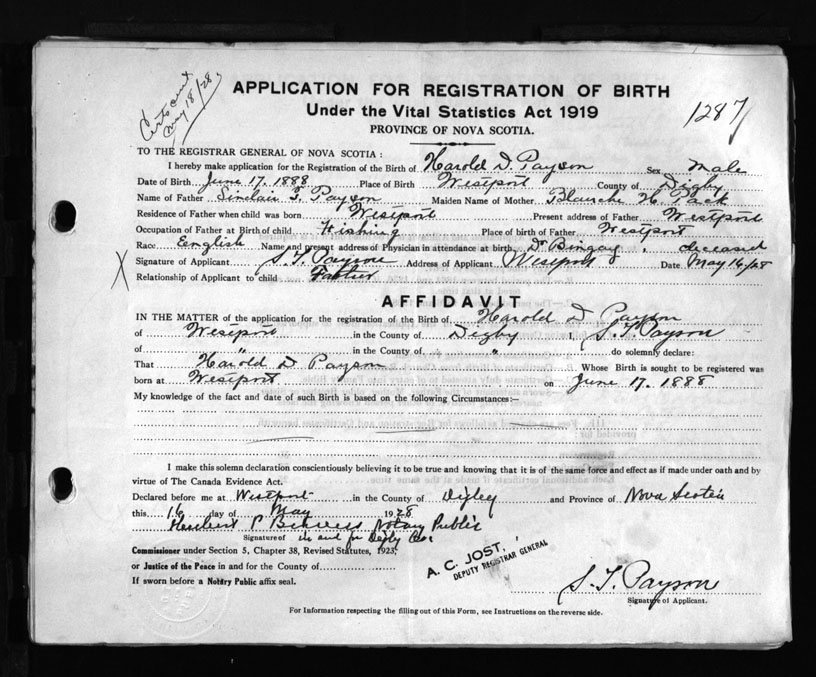 Certs sent
May 18/28
APPLICATION FOR REGISTRATION OF BIRTH
Under the Vital Statistics Act 1919
1287
PROVINCE OF NOVA SCOTIA.
TO THE REGISTRAR GENERAL OF NOVA SCOTIA :
I hereby make application for the Registration of the Birth of Harold D. Payson Sex Male
Date of Birth June 17. 1888 Place of Birth Westport County of Digby
Name of Father Sinclair T. Payson Maiden Name of Mother Blanche H. Pack
Residence of Father when child was born Westport Present address of Father Westport
Occupation of Father at Birth of child Fishing Place of birth of Father Westport
Race English Name and present address of Physician in attendance at birth Dr Bingay, deceased
X Signature of Applicant S. T. Payson Address of Applicant Westport Date May 16/28
Relationship of Applicant to child Father
AFFIDAVIT
IN THE MATTER of the application for the registration of the Birth of Harold D Payson
of Westport in the County of Digby I, S. T. Payson
of " in the County of " do solemnly declare:
That Harold D Payson Whose Birth is sought to be registered was
born at Westport on June 17. 1888
My knowledge of the fact and date of such Birth is based on the following Circumstances:—
I make this solemn declaration conscientiously believing it to be true and knowing that it is of the same force and effect as if made under oath and by
virtue of The Canada Evidence Act.
Declared before me at Westport in the County of Digby and Province of Nova Scotia
this 16 day of May 1928
Herbert P Notary Public
Signature of in and for Digby Co.
Commissioner under Section 5, Chapter 38, Revised Statutes, 1923,
or Justice of the Peace in and for the County of
If sworn before a Notary Public affix seal.
A. C. JOST.
DEPUTY REGISTRAR GENERAL
S. T. Payson
Signature of Applicant.
For Information respecting the filling out of this Form, see Instructions on the reverse side.